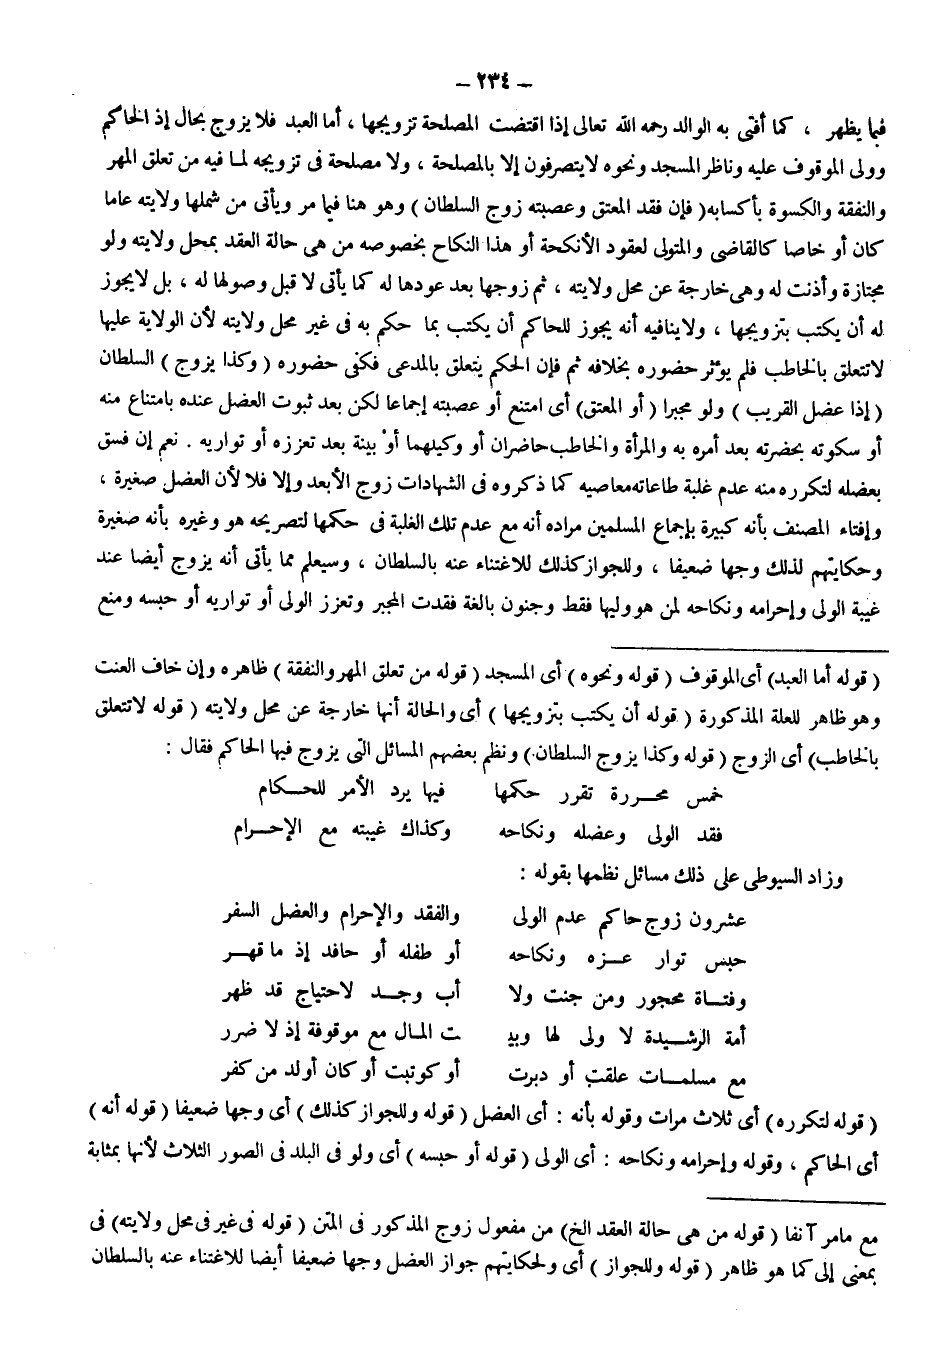 – ٢٣٤ –
فيما يظهر ، كما أفتى به الوالد رحمه الله تعالى إذا اقتضت المصلحة تزويجها ، أما العبد فلا يزوج بحال إذ الحاكم
وولى الموقوف عليه وناظر المسجد ونحوه لايتصرفون إلا بالمصلحة ، ولا مصلحة فى تزويجه لما فيه من تعلق المهر
والنفقة والكسوة بأكسابه( فإن فقد المعتق وعصبته زوج السلطان ) وهو هنا فيما مر ويأتى من شملها ولايته عاما
كان أو خاصا كالقاضى والمتولى لعقود الأنكحة أو هذا النكاح بخصوصه من هى حالة العقد بمحل ولايته ولو
مجتازة وأذنت له وهى خارجة عن محل ولايته ، ثم زوجها بعد عودها له كما يأتى لا قبل وصولها له ، بل لايجوز
له أن يكتب بتزويجها ، ولاينافيه أنه يجوز للحاكم أن يكتب بما حكم به فى غير محل ولايته لأن الولاية عليها
لاتتعلق بالخاطب فلم يؤثر حضوره بخلافه ثم فإن الحكم يتعلق بالمدعى فكفى حضوره ( وكذا يزوج ) السلطان
( إذا عضل القريب ) ولو مجبرا ( أو المعتق) أى امتنع أو عصبته إجماعا لكن بعد ثبوت العضل عنده بامتناع منه
أو سكوته بحضرته بعد أمره به والمرأة والخاطب حاضران أو وكيلهما أو بينة بعد تعززه أو تواريه . نعم إن فسق
بعضله لتكرره منه عدم غلبة طاعاته معاصيه كما ذكروه فى الشهادات زوج الأبعد وإلا فلا لأن العضل صغيرة ،
وإفتاء المصنف بأنه كبيرة بإجماع المسلمين مراده أنه مع عدم تلك الغلبة فى حكمها لتصريحه هو وغيره بأنه صغيرة
وحكايتهم لذلك وجها ضعيفا ، وللجواز كذلك للاغتناء عنه بالسلطان ، وسيعلم مما يأتى أنه يزوج أيضا عند
غيبة الولى وإحرامه ونكاحه لمن هو وليها فقط وجنون بالغة فقدت المجبر وتعزز الولى أو تواريه أو حبسه ومنع
( قوله أما العبد) أى الموقوف ( قوله ونحوه ) أى المسجد ( قوله من تعلق المهر والنفقة ) ظاهره وإن خاف العنت
وهو ظاهر للعلة المذكورة ( قوله أن يكتب بتزويجها ) أى والحالة أنها خارجة عن محل ولايته ( قوله لاتتعلق
بالخاطب) أى الزوج ( قوله وكذا يزوج السلطان ) ونظم بعضهم المسائل التى يزوج فيها الحاكم فقال :
خمس محررة تقرر حكمها فيها يرد الأمر للحكام
فقد الولى وعضله ونكاحه وكذاك غيبته مع الإحرام
وزاد السيوطى على ذلك مسائل نظمها بقوله :
عشرون زوج حاكم عدم الولى والفقد والإحرام والعضل السفر
حبس توار عزه ونكاحه أو طفله أو حافد إذ ما قهر
وفتاة محجور ومن جنت ولا أب وجد لاحتياج قد ظهر
أمة الرشيدة لا ولى لها وبيـ ـت المال مع موقوفة إذ لا ضرر
مع مسلمات علقت أو دبرت أو كوتبت أو كان أولد من كفر
( قوله لتكرره) أى ثلاث مرات وقوله بأنه : أى العضل ( قوله وللجواز كذلك ) أى وجها ضعيفا ( قوله أنه )
أى الحاكم ، وقوله وإحرامه ونكاحه : أى الولى ( قوله أو حبسه ) أى ولو فى البلد فى الصور الثلاث لأنها بمثابة
مع مامر آنفا ( قوله من هى حالة العقد الخ) من مفعول زوج المذكور فى المتن ( قوله فى غير فى محل ولايته) فى
بمعنى إلى كما هو ظاهر ( قوله وللجواز ) أى ولحكايتهم جواز العضل وجها ضعيفا أيضا للاغتناء عنه بالسلطان